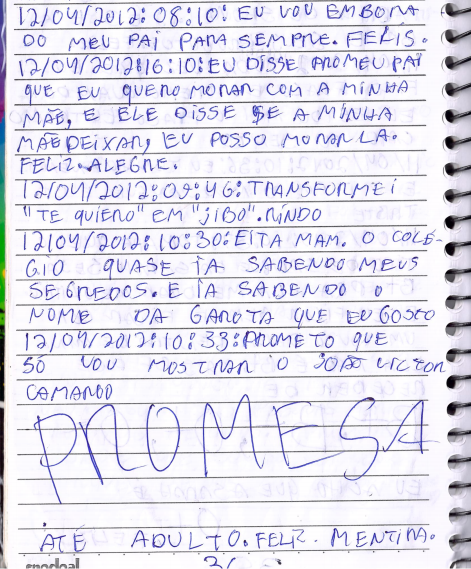 12/04/2012:08:10: EU VOU EMBORA
DO MEU PAI PARA SEMPRE. FELIS.
12/04/2012:16:10: EU DISSE PROMEU PAI
QUE EU QUERO MORAR COM A MINHA
MÃE, E ELE DISSE SE A MINHA
MÃE DEIXAR, EU POSSO MORAR LA.
FELIZ. ALEGRE.
12/04/2012:09:46: TRANSFORMEI
"TE QUIERO" EM "JIBO". RINDO
12/04/2012:10:30: EITA MAM. O COLÉ-
GIO QUASE IA SABENDO MEUS
SEGREDOS. E IA SABENDO O
NOME DA GAROTA QUE EU GOSTO
12/04/2012:10:33: PROMETO QUE
SÓ VOU MOSTRAR O JOÃO VICTOR
CAMARDO
PROMESA
ATÉ ADULTO. FELIZ. MENTIRA.